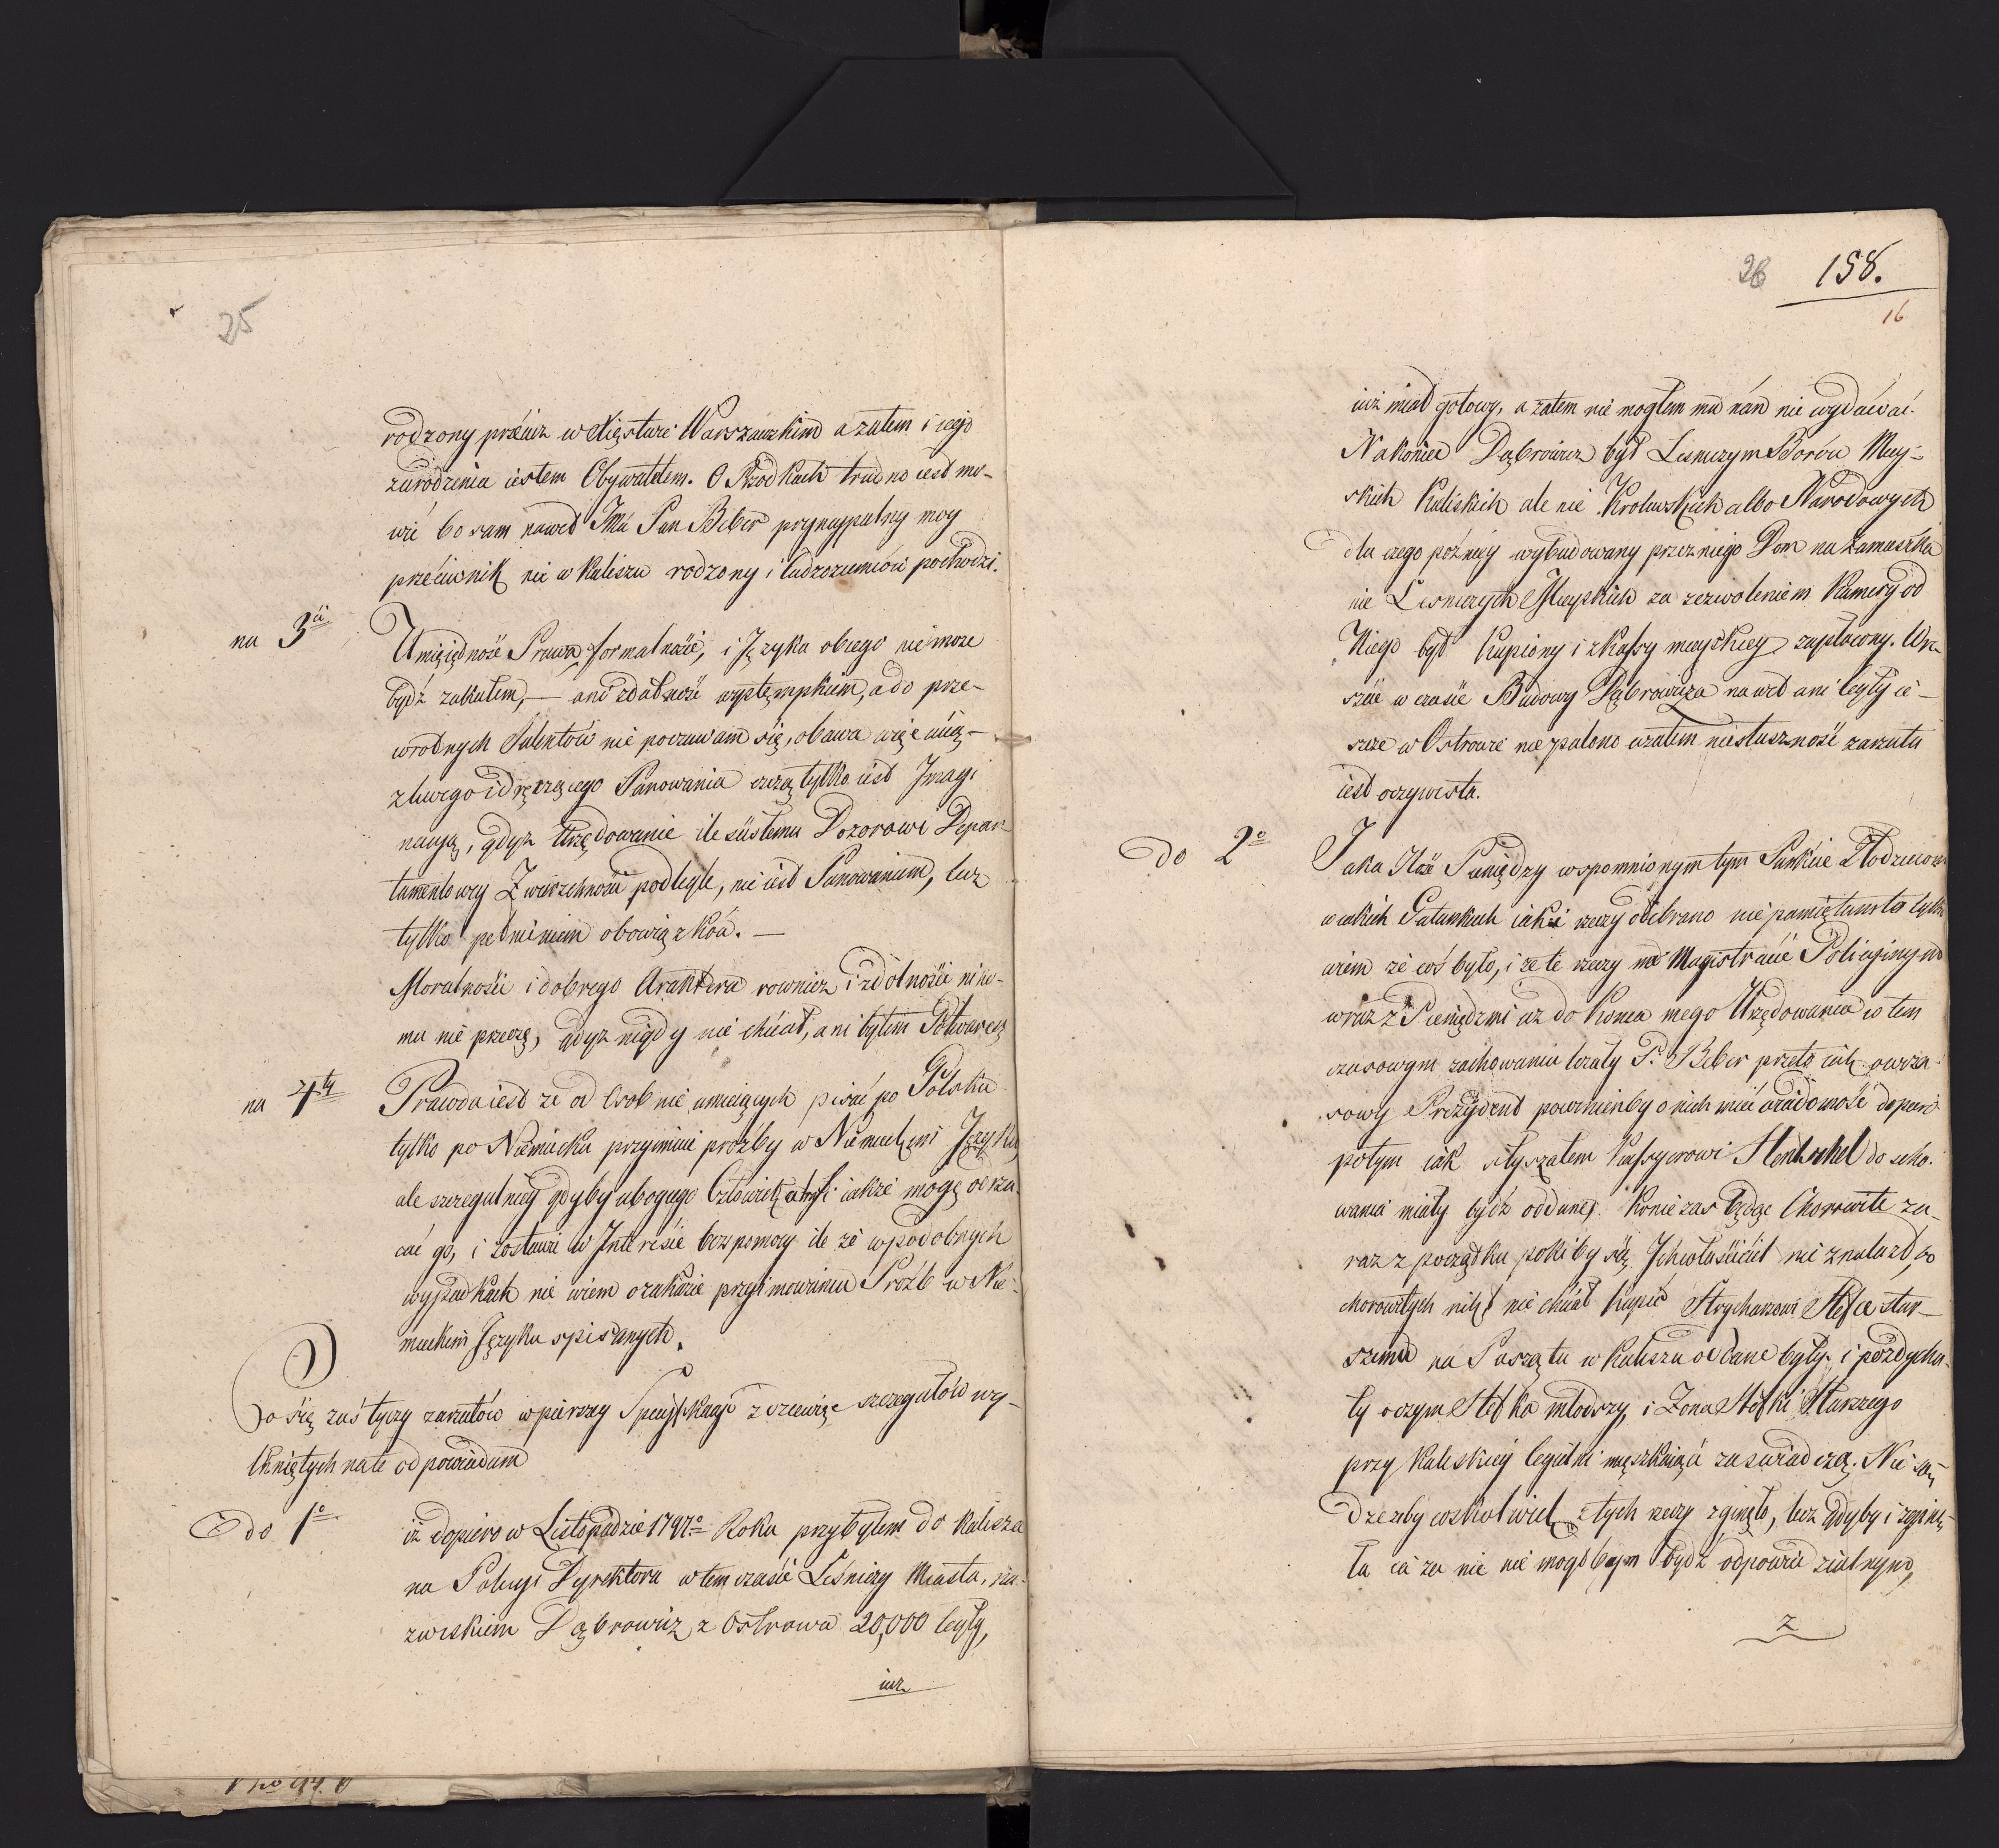 25
rodzony przéciez w Xięstwie Warszawskim a zatem i iego
zurodzenia iestem Obywatelem. O Przodkach trudno iest mo-
wić bo sam nawet Imć Pan Beber przynaypalny moy
przéciwnik nie w Kaliszu rodzony i cudzoziemców pochodzi.
na 3ci
Umieiętność Prawa, formalność, i Języka obcego nie może
bydź zakałem, — ani zdatność występnkiem, a do prze-
wrotnych Talentów nie poczuwam się, obawa więc uią-
żliwego i dręczącego Panowania czczą tylko iest Imagi
nacyą, gdyż Urzędowanie ile sústemu Dozorowi Depar-
tamentowey Zwierzchności podległe, nie iest Panowaniem, lecz
tylko pełnieniem obowiązków. —
Moralności i dobrego Charakteru rownież i zdolności niko-
mu nie przeczę, gdyż nigdy nie chciał, ani byłem Potwarcą
na 4ty
Prawda iest ze od Osob nie umieiących pisać po Polsku
tylko po Niemiecku przyimuie proźby w Niemieckim Języku,
ale szczegulniey gdyby ubogiego Człowieka iakże mogę odrzu-
cać go, i zostawić w Interesie bez pomocy ile że w podobnych
wypadkach nie wiem o zakazie przyimowania Proźb w Nie-
mieckim Języku spisanych.
Co się zaś tyczy zarzutów w pierszey Specyfikacyi zszewięc szczegułów wy-
tkniętych na te odpowiadam
do 1o
iż dopiero w Listopadzie 1797o Roku przybyłem do Kalisza
na Policyi Dyrektora w tem czasie Leśniczy Miasta, na-
zwiskiem Dąbrowicz z Ostrowa 20,000 Cegły,
iuz
26 158.
16
iuż miał gotowy, a zatem nie mogłem mu nań nie wydawać.
Nakoniec Dąbrowicz był Lesniczym Borów Miey-
skich Kaliskich ale nie Krolewskich albo Narodowych
dla czego pozniey wybudowany przez niego Dom na zamieszka
nie Lesniczych Mieyskich za zezwoleniem Kamery od
Niego był Kupiony i z Kassy mieyskiey zapłacony. Wre-
szcie w czasie Budowy Dąbrowicza nawet ani Cegły ie-
szcze w Ostrowie nie palono a zatem niesłuszność zarzutu
iest oczywista.
do 2o
Jaka Ilość Pieniędzy wspomnionym tym Punkcie Złodzieiom
w iakich Gatunkach iakie rzeczy odebrano nie pamiętam to tylko
wiem że coś było, i że te rzeczy na Magistracie Policyinym
wraz z Pieniędzmi aż do Konca mego Urzędowania w tem
czasowym zachowaniu leżały P. Beber przeto iako owcza-
sowy Prezydent powinienby o nich mieć wiadomość dopiero
potym iak słyszałem Kassyerowi Hentschel do scho-
wania miały bydź oddane. Konie zas będąc Chorowite za-
raz z początku pokiby się Ich właściciel nie znalazł, bo
chorowitych nikt nie chciał kupić Strycharzowi Stefce star-
szemu na Paszę tu w Kaliszu oddane były i pozdycha-
ły o czym Stefka młodszy i Żona Stefki Starszego
przy Kaliskiey Cegielni mięszkaiąca zaświadczą. Nie są-
dzę zeby cożkolwiek z tych rzeczy zginęło, lecz gdyby i zginę-
ło ia za nie nie mogłbym bydź odpowiedzialnym,
z